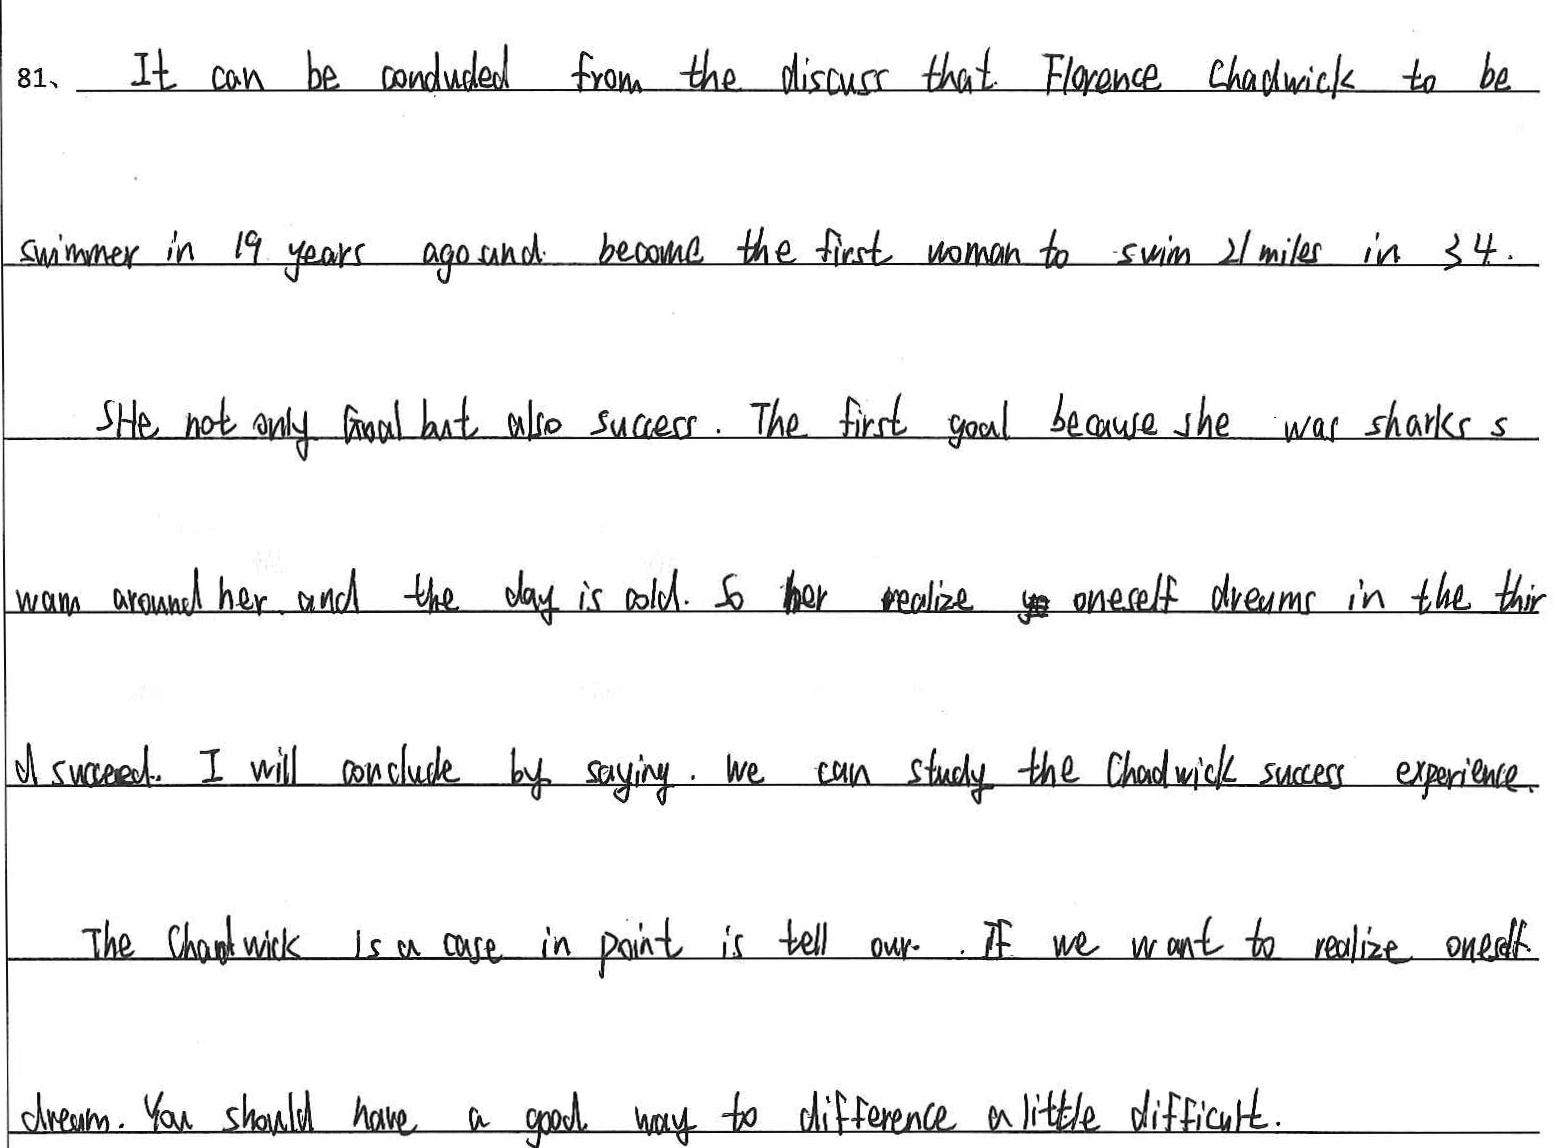 81、 It can be conduded from the discuss that Florence Chadwick to be
swimmer in 19 years ago and become the first woman to swim 21 miles in 34.
SHe not only Goal but also success. The first goal because she was sharks s
wam around her and the day is cold. So her realize oneself dreams in the thir
d succeed. I will conclude by saying. We can study the Chadwick success experience.
The Chadwick is a case in point is tell our. If we want to realize oneself
dream. You should have a good way to difference a little difficult.